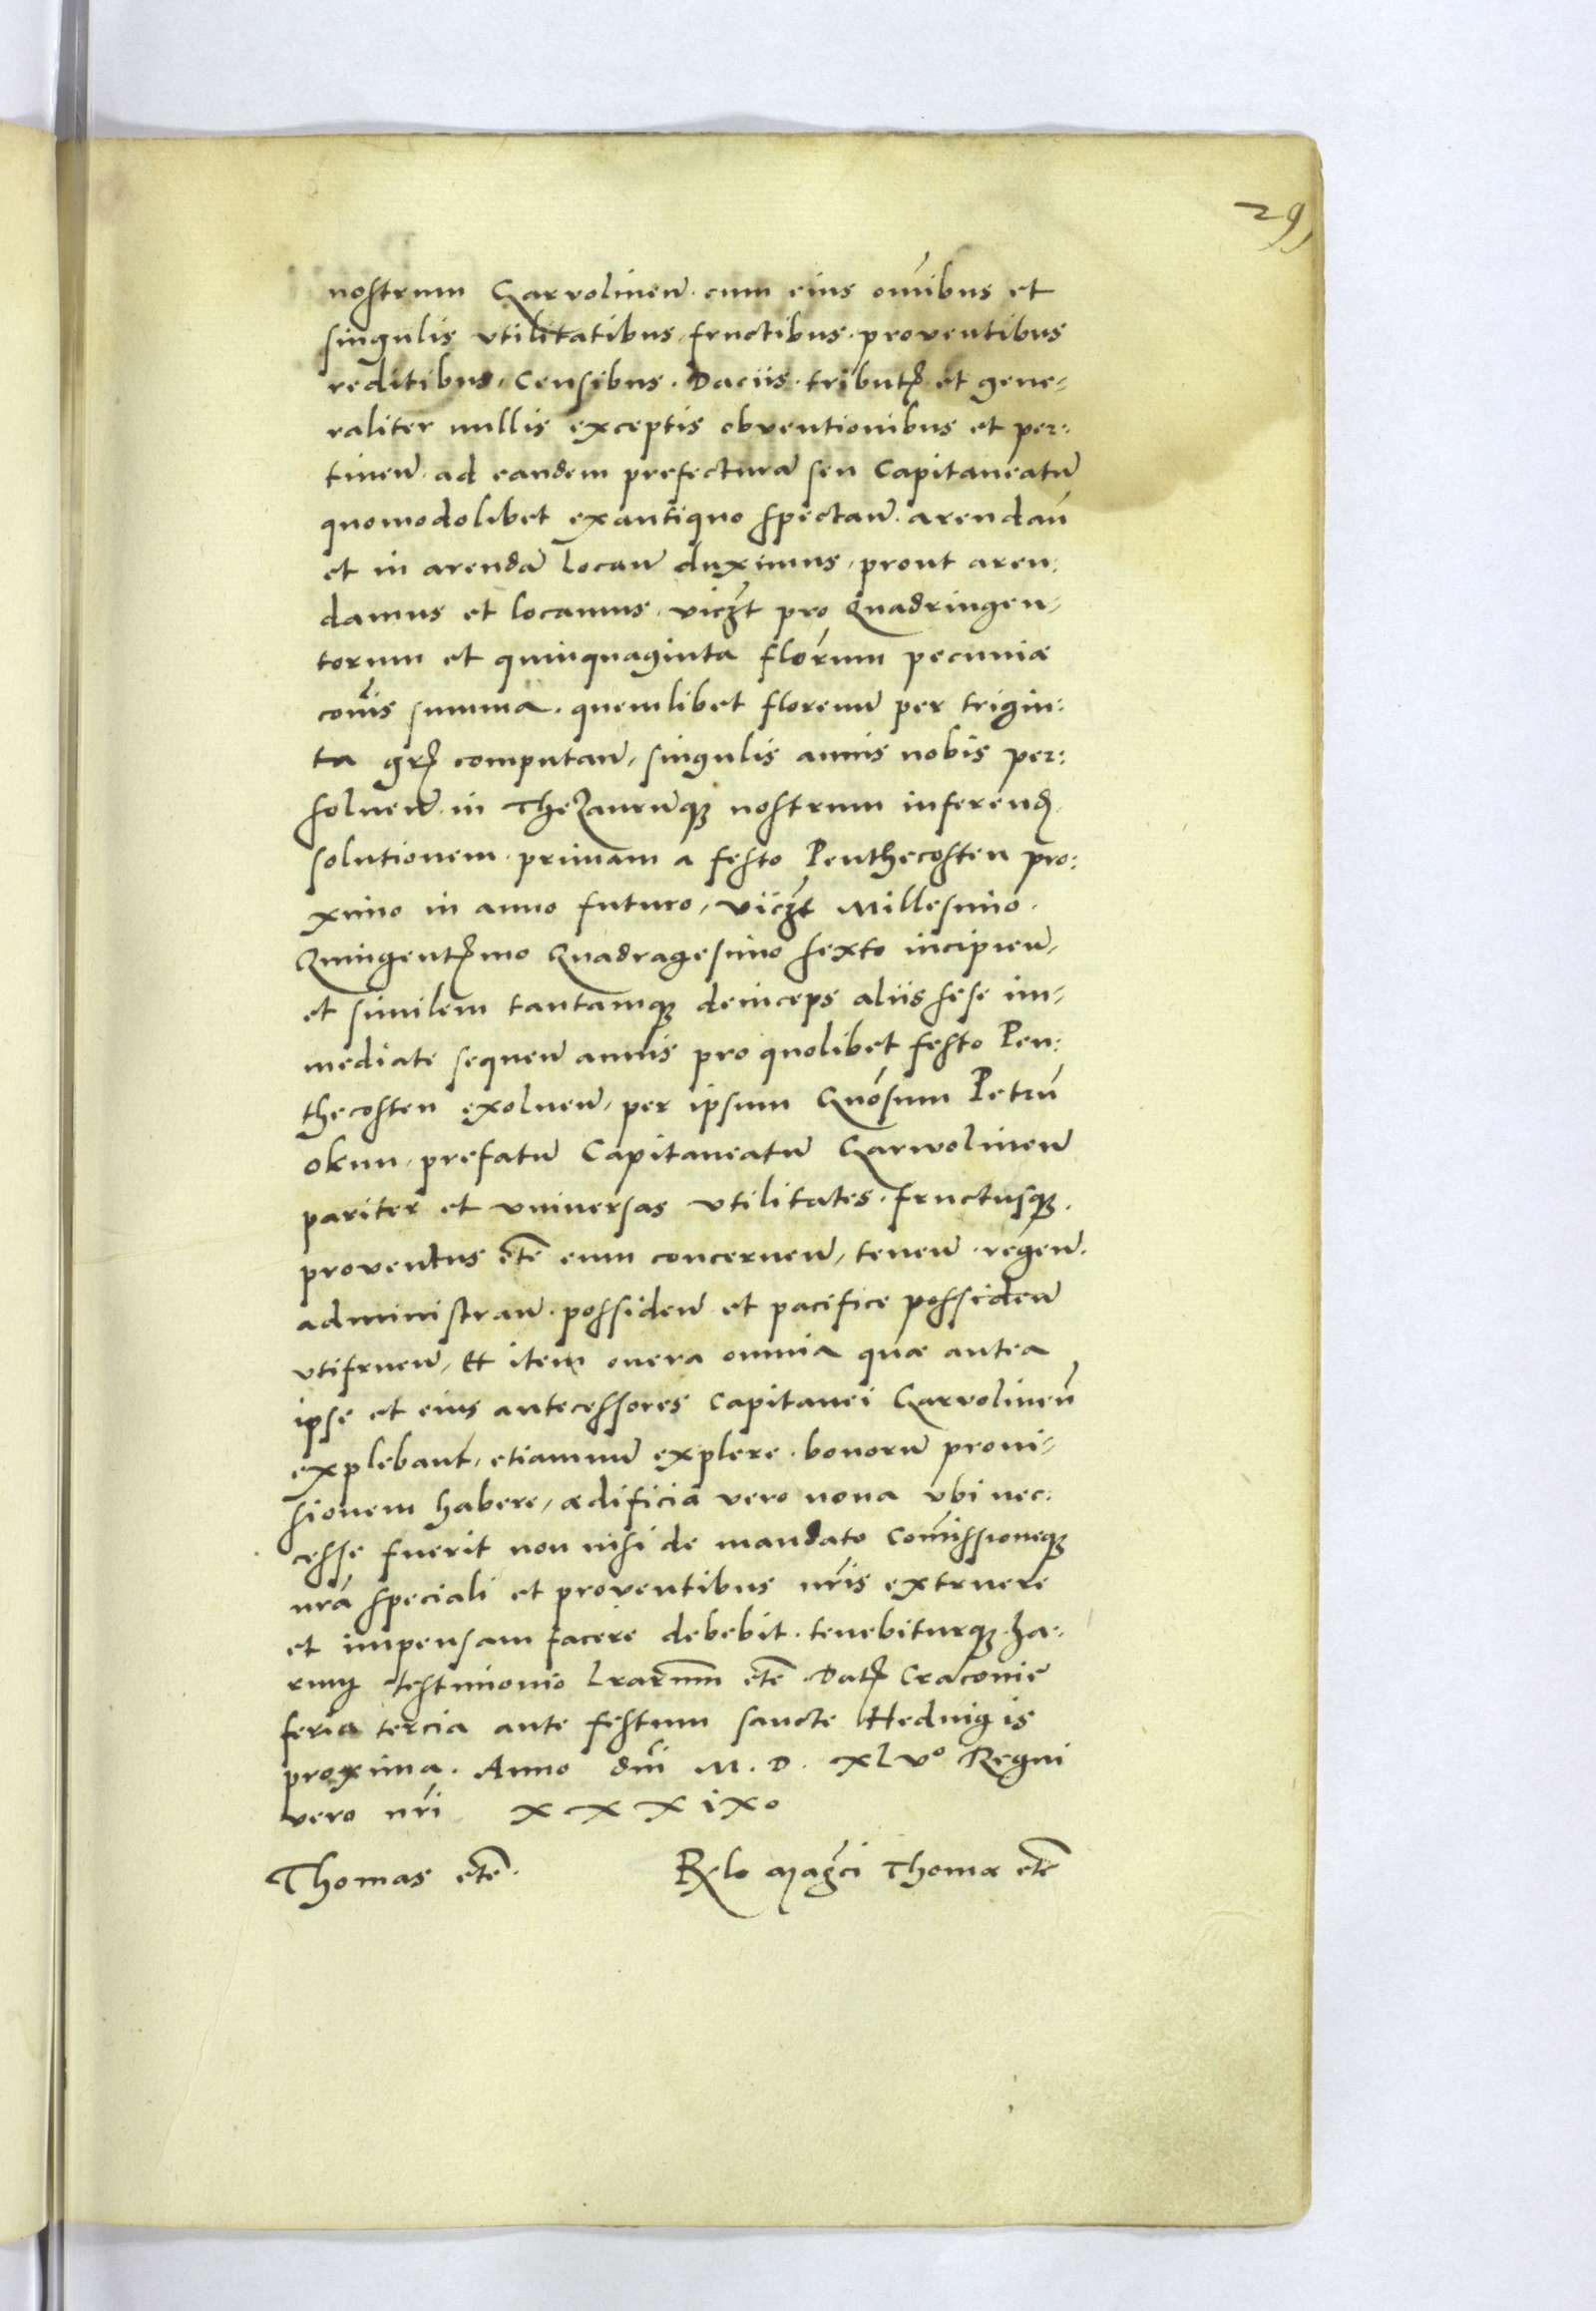 29
nostrum Garvolinen̄. cum eius om̄ibus et
singulis vtilitatibus, fructibus. proventibus
reditibus, Censibus. Daciis. tributꝭ et gene-
raliter nullis exceptis obventionibus et per:
tinen̄. ad eandem prefecturā seu Capitaneatū
quomodolibet exantiquo spectan̄. arendan̄
et in arendā locan̄ duximus, prout aren:
damus et locamus. viczt pro Quadringen-
torum et quinquaginta florum pecuniæ
cōis summa. quemlibet florenū per trigin:
ta grꝭ computan̄, singulis annis nobis per:
soluen̄. in Thezaurūqꝫ nostrum inferenđ.
solutionem. primam a festo Penthecosten pro:
ximo in anno futuro, viiczt Millesimo.
Quingentꝭmo Quadragesimo sexto incipien̄,
et similem tantamqꝫ deinceps aliis sese im-
mediate sequen̄ annis pro quolibet festo Pen:
thecosten exoluen̄, per ipsum Gnōsum Petrū
Okun, prefatū Capitaneatū Garwolinen̄
pariter et vniuersas vtilitates. fructusqꝫ.
proventus etc̄ eum concernen̄, tenen̄. regen̄.
administran̄. possiden̄ et pacifice possiden̄
vtifruen̄, Et item onera omnia quæ antea
ipse et eius antecessores Capitanei Garvolinen̄
explebant, etiamnū explere. bonorū proui-
sionem habere, ædificia vero noua vbi nec:
cesse fuerit non nisi de mandato Com̄issioneqꝫ
nr̄a speciali et proventibus nr̄is extruere
et impensam facere debebit. tenebiturqꝫ. hæ.
rum testimonio lr̄arum etc̄. Datꝭ Cracouie
feria tercia ante festum sancte Heduigis
proxima. Anno dn̄i M. D. xlvº Regni
vero nr̄i xxxixo
Thomas etc̄. Rȩlo Magc̄i Thomæ etc̄